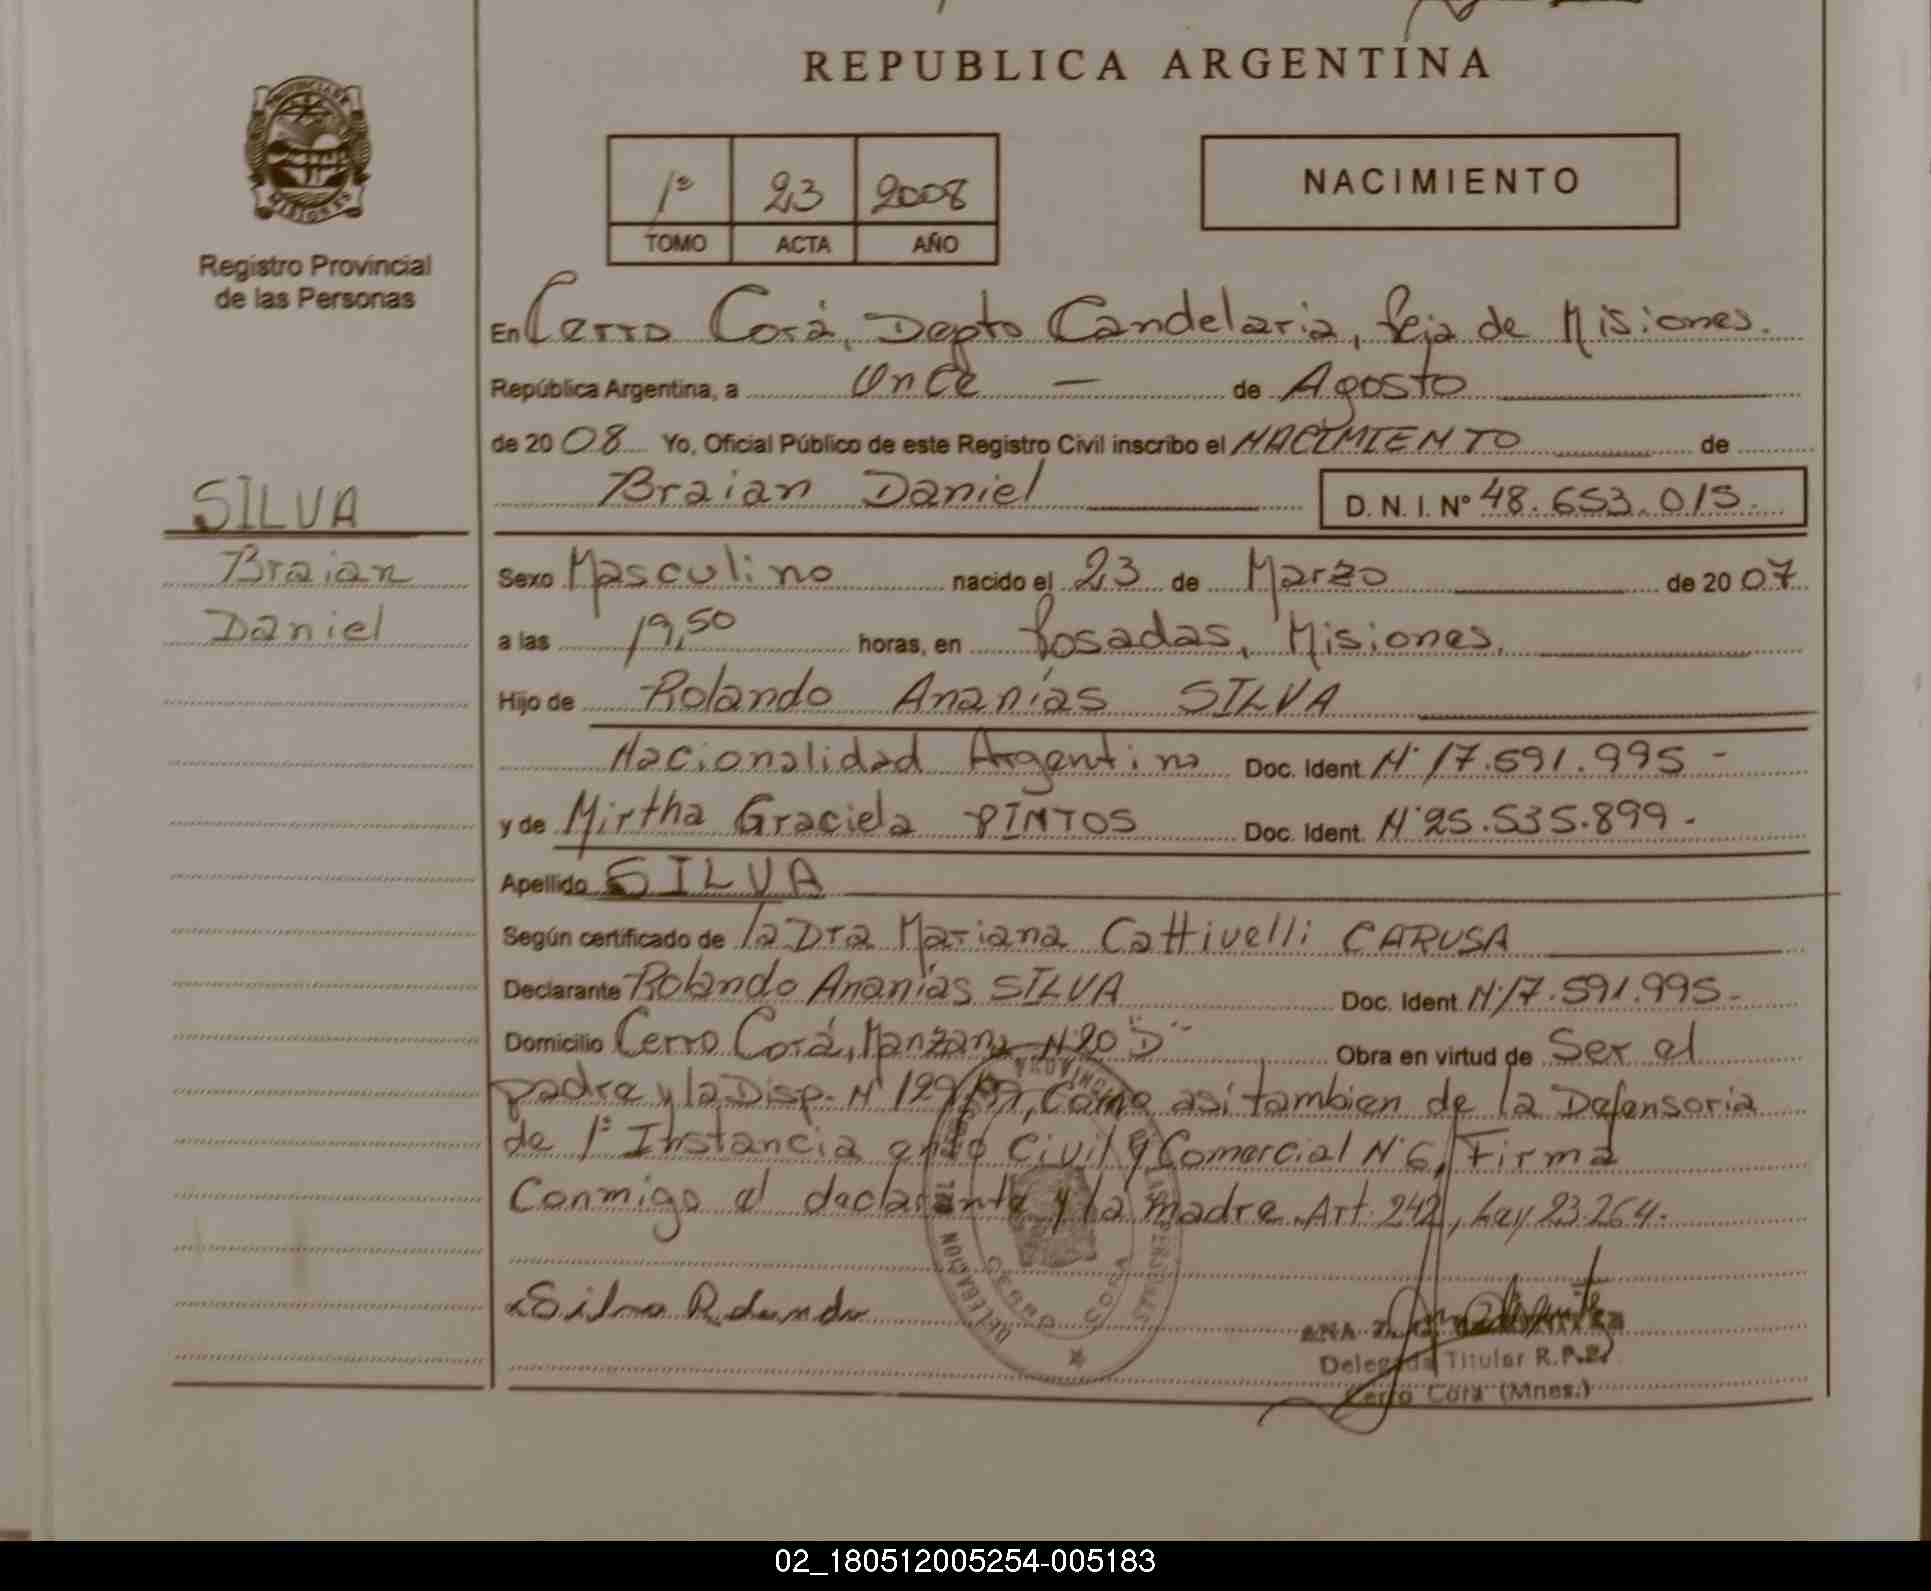 REPUBLICA ARGENTINA
PROVINCIA DE MISIONES
Registro Provincial
de las Personas
1º 23 2008
TOMO ACTA AÑO
NACIMIENTO
En Cerro Corá, Depto Candelaria, Pcia de Misiones.
República Argentina, a Once — de Agosto
de 2008 Yo, Oficial Público de este Registro Civil inscribo el NACIMIENTO de
Braian Daniel D. N. I. Nº 48.653.015.
SILVA
Braian
Daniel
Sexo Masculino nacido el 23 de Marzo de 2007
a las 19,50 horas, en Posadas, Misiones.
Hijo de Rolando Ananías SILVA
Nacionalidad Argentina Doc. Ident. Nº 17.591.995 -
y de Mirtha Graciela PINTOS Doc. Ident. Nº 25.535.899 -
Apellido SILVA
Según certificado de la Dra Mariana Cattivelli CARUSA
Declarante Rolando Ananías SILVA Doc. Ident. Nº 17.591.995 -
Domicilio Cerro Corá, Manzana Nº 20 "D" Obra en virtud de Ser el
padre y la Disp. Nº como asi tambien de la Defensoria
de 1º Instancia en lo Civil y Comercial Nº 6, Firma
Conmigo el declarante y la madre Art. 242, Ley 23.264.
Silva Rolando
DELEGACION CERRO CORA
ANA
Delegada Titular R.P.P.
Cerro Corá (Mnes.)
02_180512005254-005183